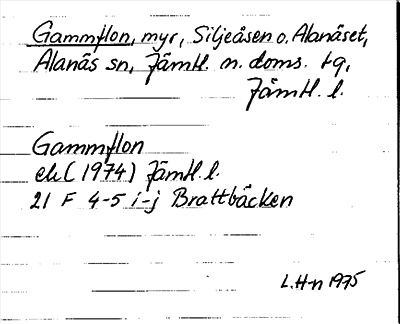 Gammflon, myr, Siljeåsen o. Alanäset,
Alanäs sn, Jämtl. n. doms. tg,
Jämtl. l.
Gammflon
ek (1974) Jämtl. l.
21 F 4-5 i-j Brattbäcken
L.H-n 1975